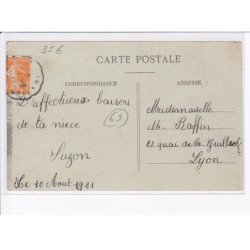 35 €
CARTE POSTALE
CORRESPONDANCE
ADRESSE
D'affectueux baisers
de ta nièce
Suzon
Le 10 Août 1921
69
Mademoiselle
M. Raffin
quai de la Guillotière
Lyon